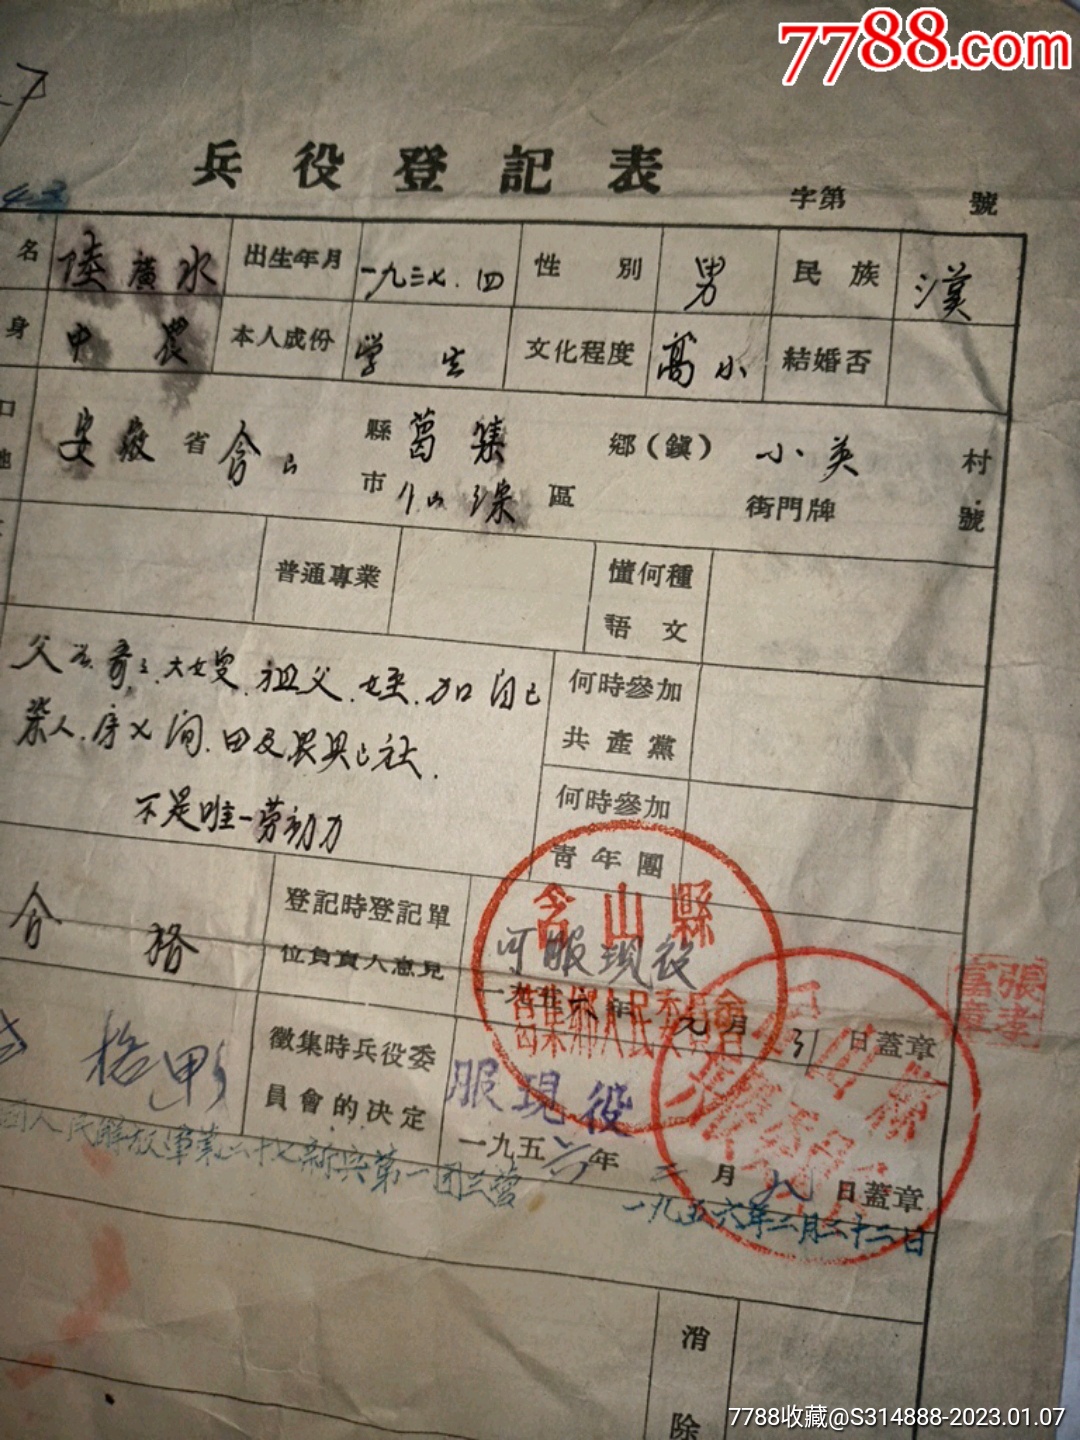 7788.com
兵役登記表
字第 號
43
名 陸廣水 出生年月 一九三七.四 性別 男 民族 漢
身 中農 本人成份 学生 文化程度 高小 結婚否
口 安徽省含山縣葛集鄉(鎮)小英村
地 市仙淙區 街門牌 號
普通專業 懂何種語文
父.母.哥.大嫂.祖父.姪.加自己
柒人.房乂间.田及農具已社.
不是唯一劳动力
何時參加共產黨
何時參加青年團
合格 登記時登記單位負責人意見 可服現役
一九五六年元月31日蓋章
含山縣
葛集鄉人民委員會
格甲 徵集時兵役委員會的決定 服現役
一九五六年二月八日蓋章
國人民解放軍第二十七新兵第一团三营
一九五六年二月二十二日
消除
7788收藏@S314888-2023.01.07